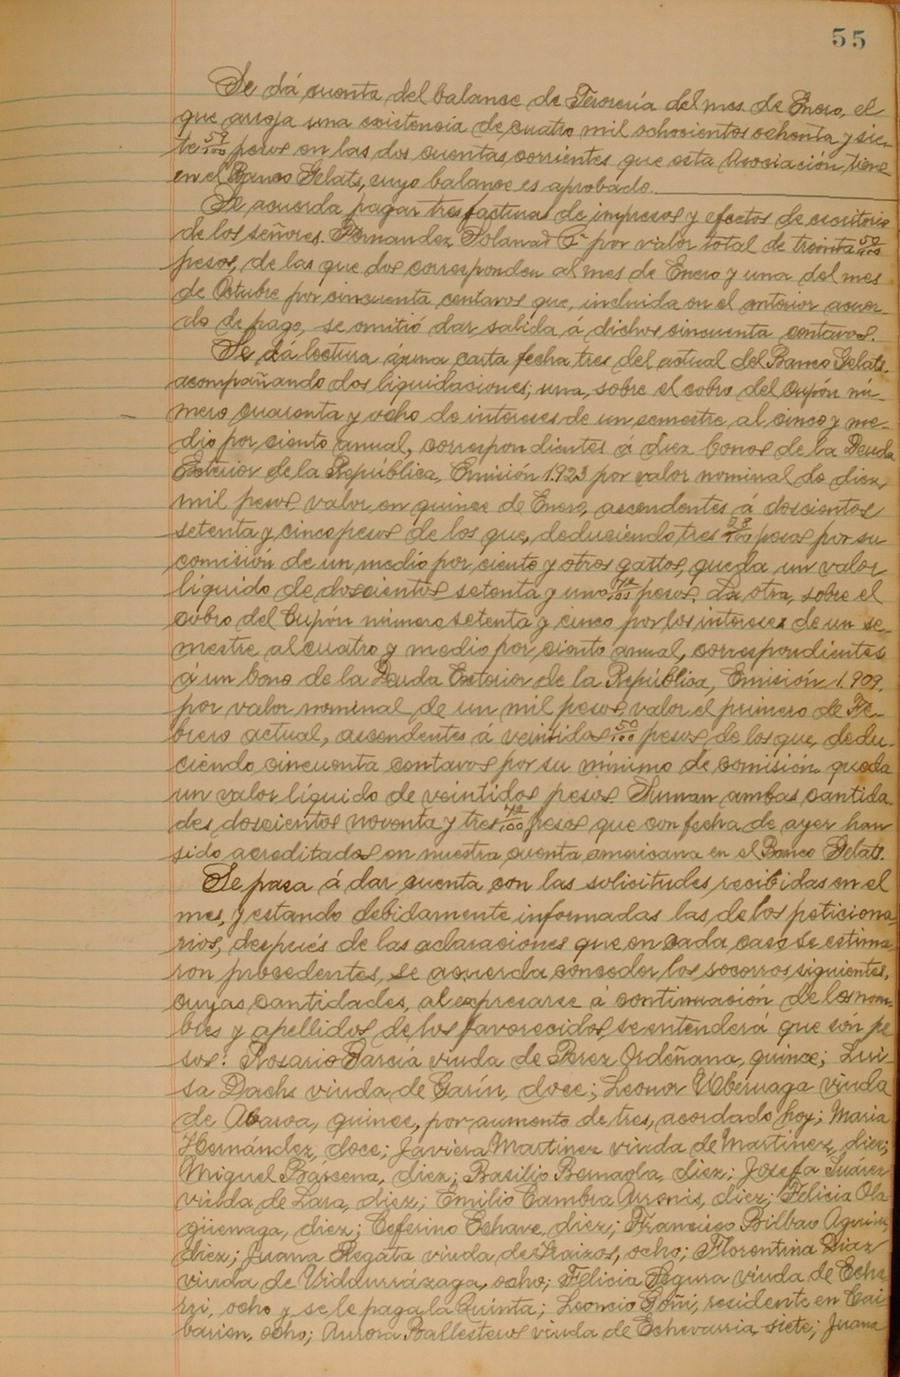 55
Se dá cuenta del balance de Tesorería del mes de Enero, el
que arroja una existencia de cuatro mil ochocientos ochenta y sie-
te 59/100 pesos en las dos cuentas corrientes que esta Asociación tiene
en el Banco Gelats, cuyo balance es aprobado.
Se acuerda pagar tres facturas de impresos y efectos de escritorio
de los señores Fernandez Solana y Cª por valor total de treinta 50/100
pesos, de las que dos corresponden al mes de Enero y una del mes
de Octubre por cincuenta centavos que, incluida en el anterior acuer-
do de pago, se omitió dar salida á dichos cincuenta centavos.
Se dá lectura á una carta fecha tres del actual del Banco Gelats.
acompañando dos liquidaciones; una, sobre el cobro del Cupón nú-
mero cuarenta y ocho de intereses de un semestre al cinco y me-
dio por ciento anual, correspondientes á diez bonos de la Deuda
Exterior de la República, Emisión 1.923 por valor nominal de diez
mil pesos, valor en quince de Enero, ascendentes á doscientos
setenta y cinco pesos de los que, deduciendo tres 28/100 pesos por su
comisión de un medio por ciento y otros gastos, queda un valor
líquido de doscientos setenta y uno 72/100 pesos. La otra, sobre el
cobro del Cupón número setenta y cinco por los intereses de un se-
mestre al cuatro y medio por ciento anual, correspondientes
á un bono de la Deuda Exterior de la República, Emisión 1.909.
por valor nominal de un mil pesos, valor el primero de Fe-
brero actual, ascendentes a veintidos 50/100 pesos de los que, dedu-
ciendo cincuenta centavos por su mínimo de comisión queda
un valor líquido de veintidos pesos. Suman ambas cantida-
des doscientos noventa y tres 72/100 pesos que con fecha de ayer han
sido acreditados en nuestra cuenta americana en el Banco Gelats.
Se pasa á dar cuenta con las solicitudes recibidas en el
mes, y estando debidamente informadas las de los peticiona-
rios, después de las aclaraciones que en cada caso se estima-
ron procedentes, se acuerda conceder los socorros siguientes,
cuyas cantidades, al expresarse á continuación de los nom-
bres y apellidos de los favorecidos, se entenderá que son pe
sos: Rosario García viuda de Perez Ordeñana, quince; Lui
sa Dachs viuda de Garín, doce; Leonor Uberuaga viuda
de Abaroa, quince, por aumento de tres, acordado hoy; Maria
Hernández, doce; Javiera Martinez viuda de Martinez, diez;
Miguel Bárcena, diez; Basilio Bernaola, diez; Josefa Suárez
viuda de Lasa, diez; Emilio Cambra Arsenis, diez; Felicia Ola
güenaga, diez; Ceferino Echave, diez; Francisco Bilbao Aguirre
diez; Juana Regata viuda de Traizos, ocho; Florentina Diaz
viuda de Vidaurrázaga, ocho; Felicia Segura viuda de Eche
rri, ocho y se le paga la Quinta; Leoncio Goñi, residente en Cai
barien, ocho; Aurora Ballesteros viuda de Echevarria siete; Juana